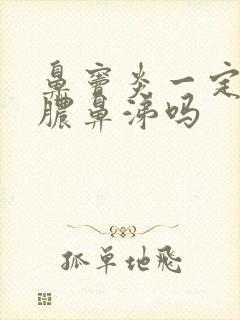 鼻窦炎一定
脓鼻涕吗
孤单地飛